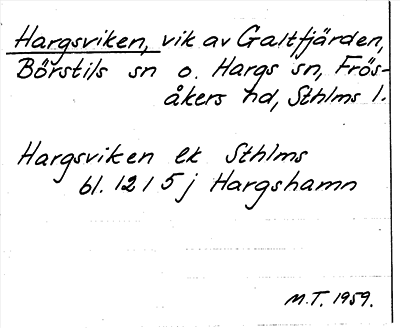 Hargsviken, vik av Galtfjärden,
Börstils sn o. Hargs sn, Frös-
åkers hd, Sthlms l.
Hargsviken ek Sthlms
bl. 12 I 5 j Hargshamn
M.T. 1959.